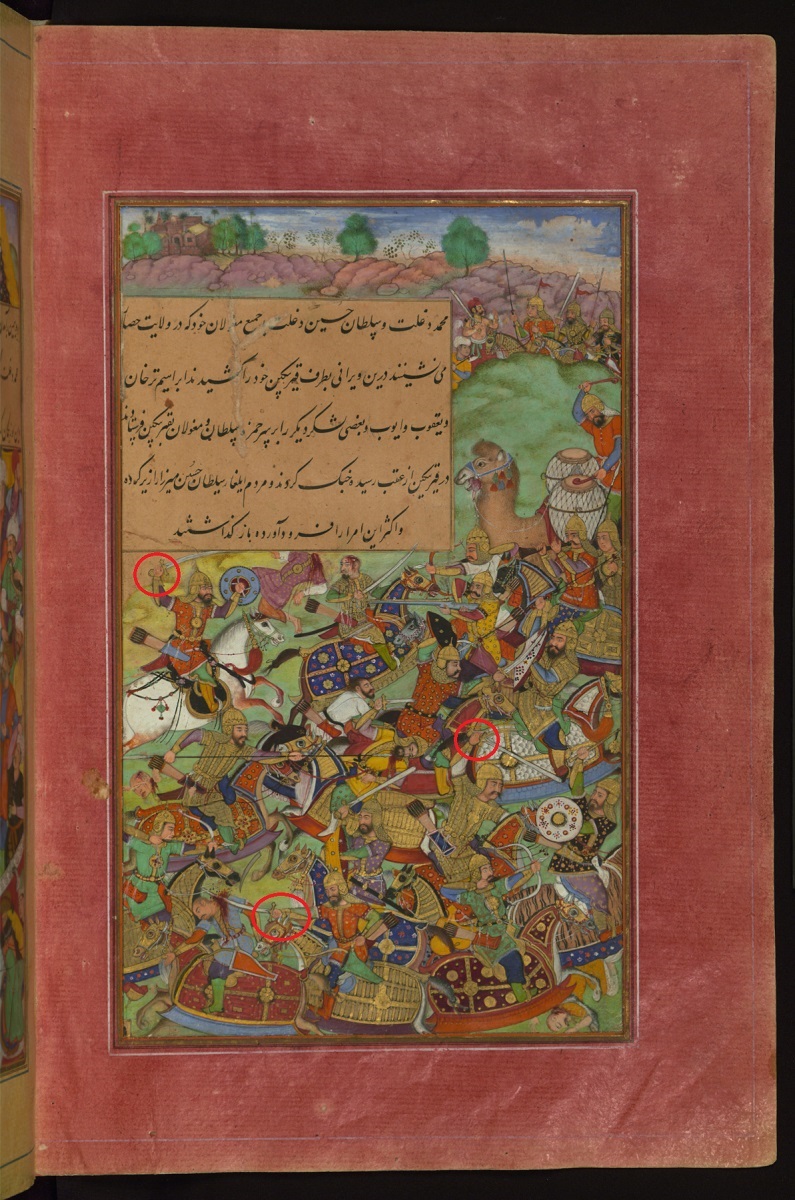 محمد دغلت و سلطان حسین دغلت و جمع مغولان خود که در ولایت حصا
می نشینند درین ویرانی بطرف قیرتکین خود را کشیدند ابراهیم ترخان
و یعقوب و ایوب و بعضی لشکر دیگر را بر سر حمزه سلطان و مغولان بقیرتکین فرستادند
در قیرتکین از عقب رسیده جنگ کردند و مردم ایلغار سلطان حسین میرزا را زیر کرده
و اکثر این امرا را فرود آورده باز گذاشتند